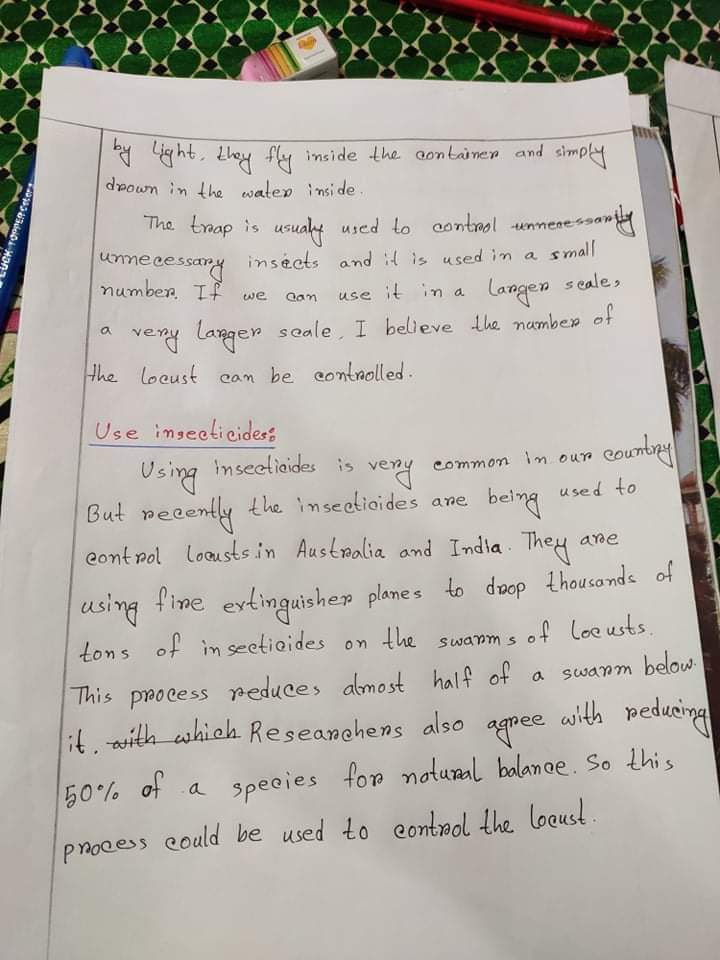 by light, they fly inside the container and simply
drown in the water inside.
The trap is usualy used to control unnecessarily
unnecessary insects and it is used in a small
number. If we can use it in a larger scale,
a very larger scale, I believe the number of
the locust can be controlled.
Use insecticides:
Using insecticides is very common in our country
But recently the insecticides are being used to
control locusts in Australia and India. They are
using fire extinguisher planes to drop thousands of
tons of insecticides on the swarms of locusts.
This process reduces almost half of a swarm below
it. with which Researchers also agree with reducing
50% of a species for natural balance. So this
process could be used to control the locust.